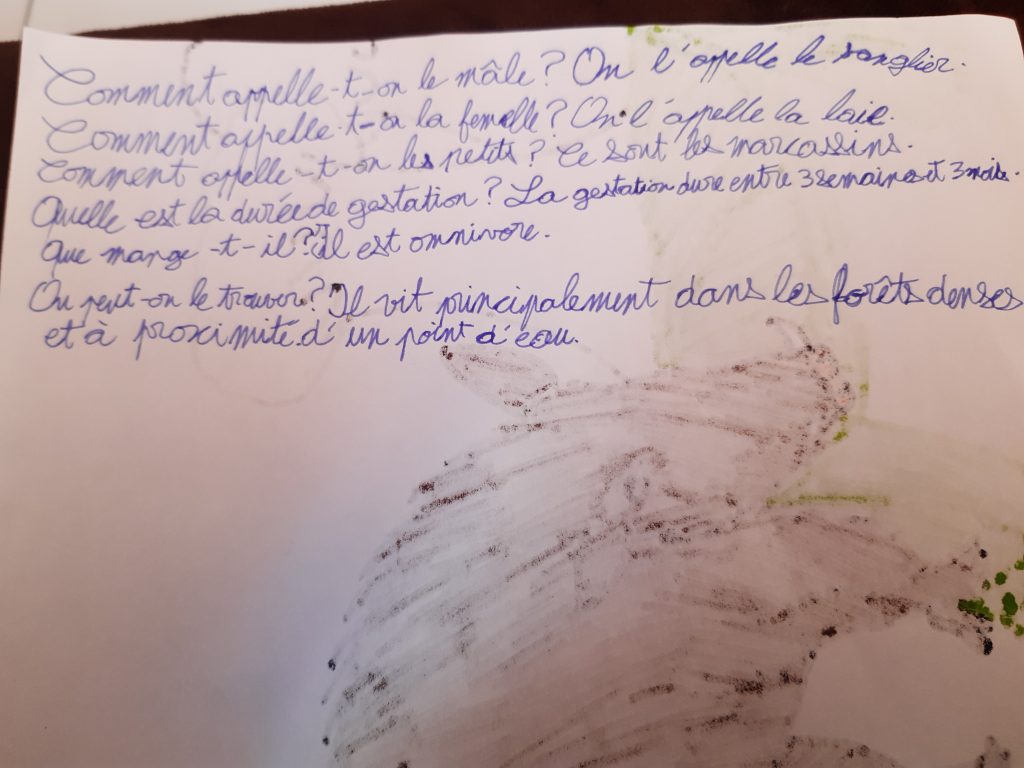 Comment appelle-t-on le mâle? On l'appelle le sanglier.
Comment appelle-t-on la femelle? On l'appelle la laie.
Comment appelle-t-on les petits? Ce sont les marcassins.
Quelle est la durée de gestation? La gestation dure entre 3 semaines et 3 mois.
Que mange-t-il? Il est omnivore.
Ou peut-on le trouver? Il vit principalement dans les forêts denses
et à proximité d'un point d'eau.